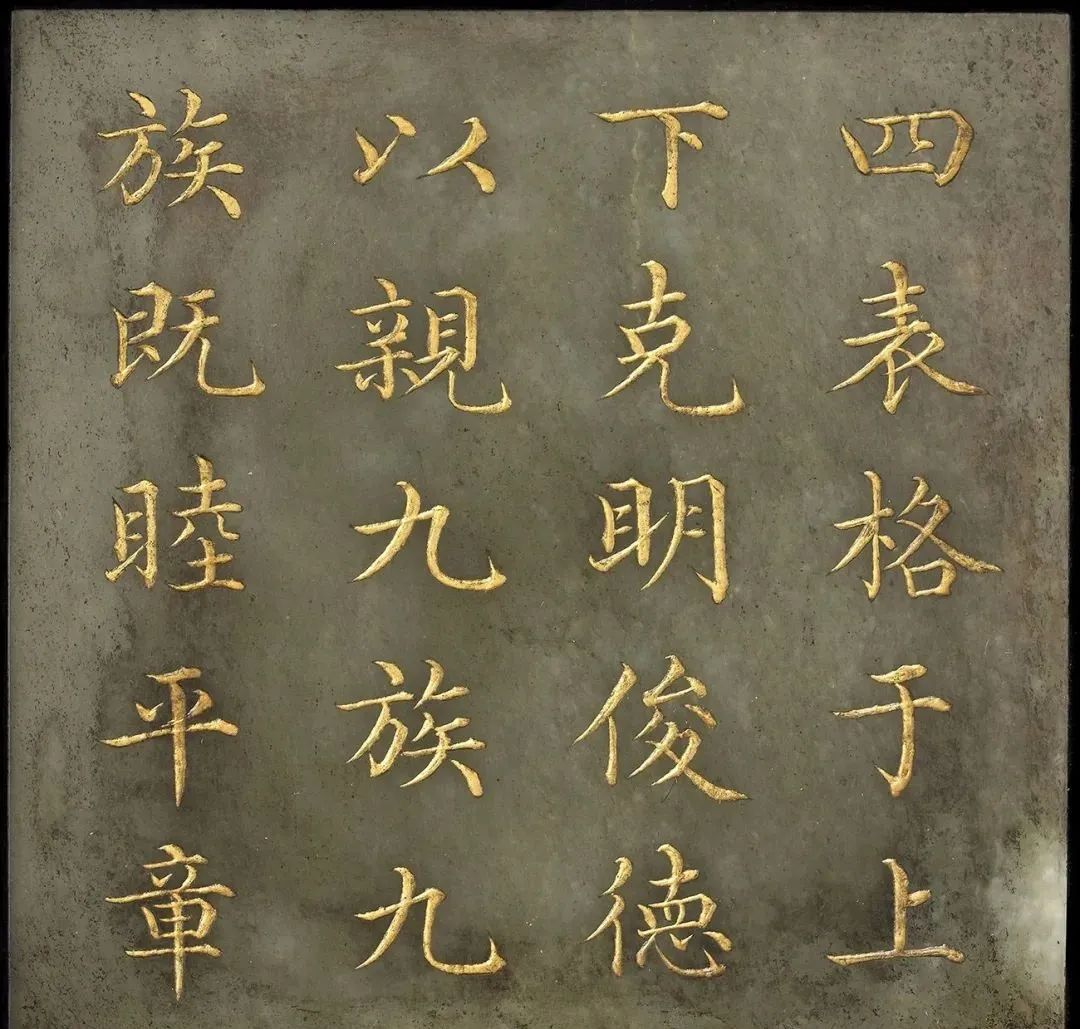 四表格于上
下克明俊德
以親九族九
族既睦平章